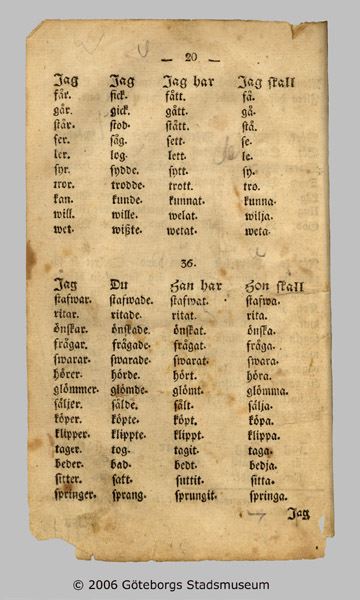 — 20 —
Jag Jag Jag har Jag skall
får. fick. fått. få.
går. gick. gått. gå.
står. stod. stått. stå.
ser. såg. sett. se.
ler. log. lett. le.
syr. sydde. sytt. sy.
tror. trodde. trott. tro.
kan. kunde. kunnat. kunna.
will. wille. welat. wilja.
wet. wißte. wetat. weta.
36.
Jag Du Han har Hon skall
stafwar. stafwade. stafwat. stafwa.
ritar. ritade. ritat. rita.
önskar. önskade. önskat. önska.
frågar. frågade. frågat. fråga.
swarar. swarade. swarat. swara.
hörer. hörde. hört. höra.
glömmer. glömde. glömt. glömma.
säljer. sålde. sålt. sälja.
köper. köpte. köpt. köpa.
klipper. klippte. klippt. klippa.
tager. tog. tagit. taga.
beder. bad. bedt. bedja.
sitter. satt. suttit. sitta.
springer. sprang. sprungit. springa.
Jag
© 2006 Göteborgs Stadsmuseum